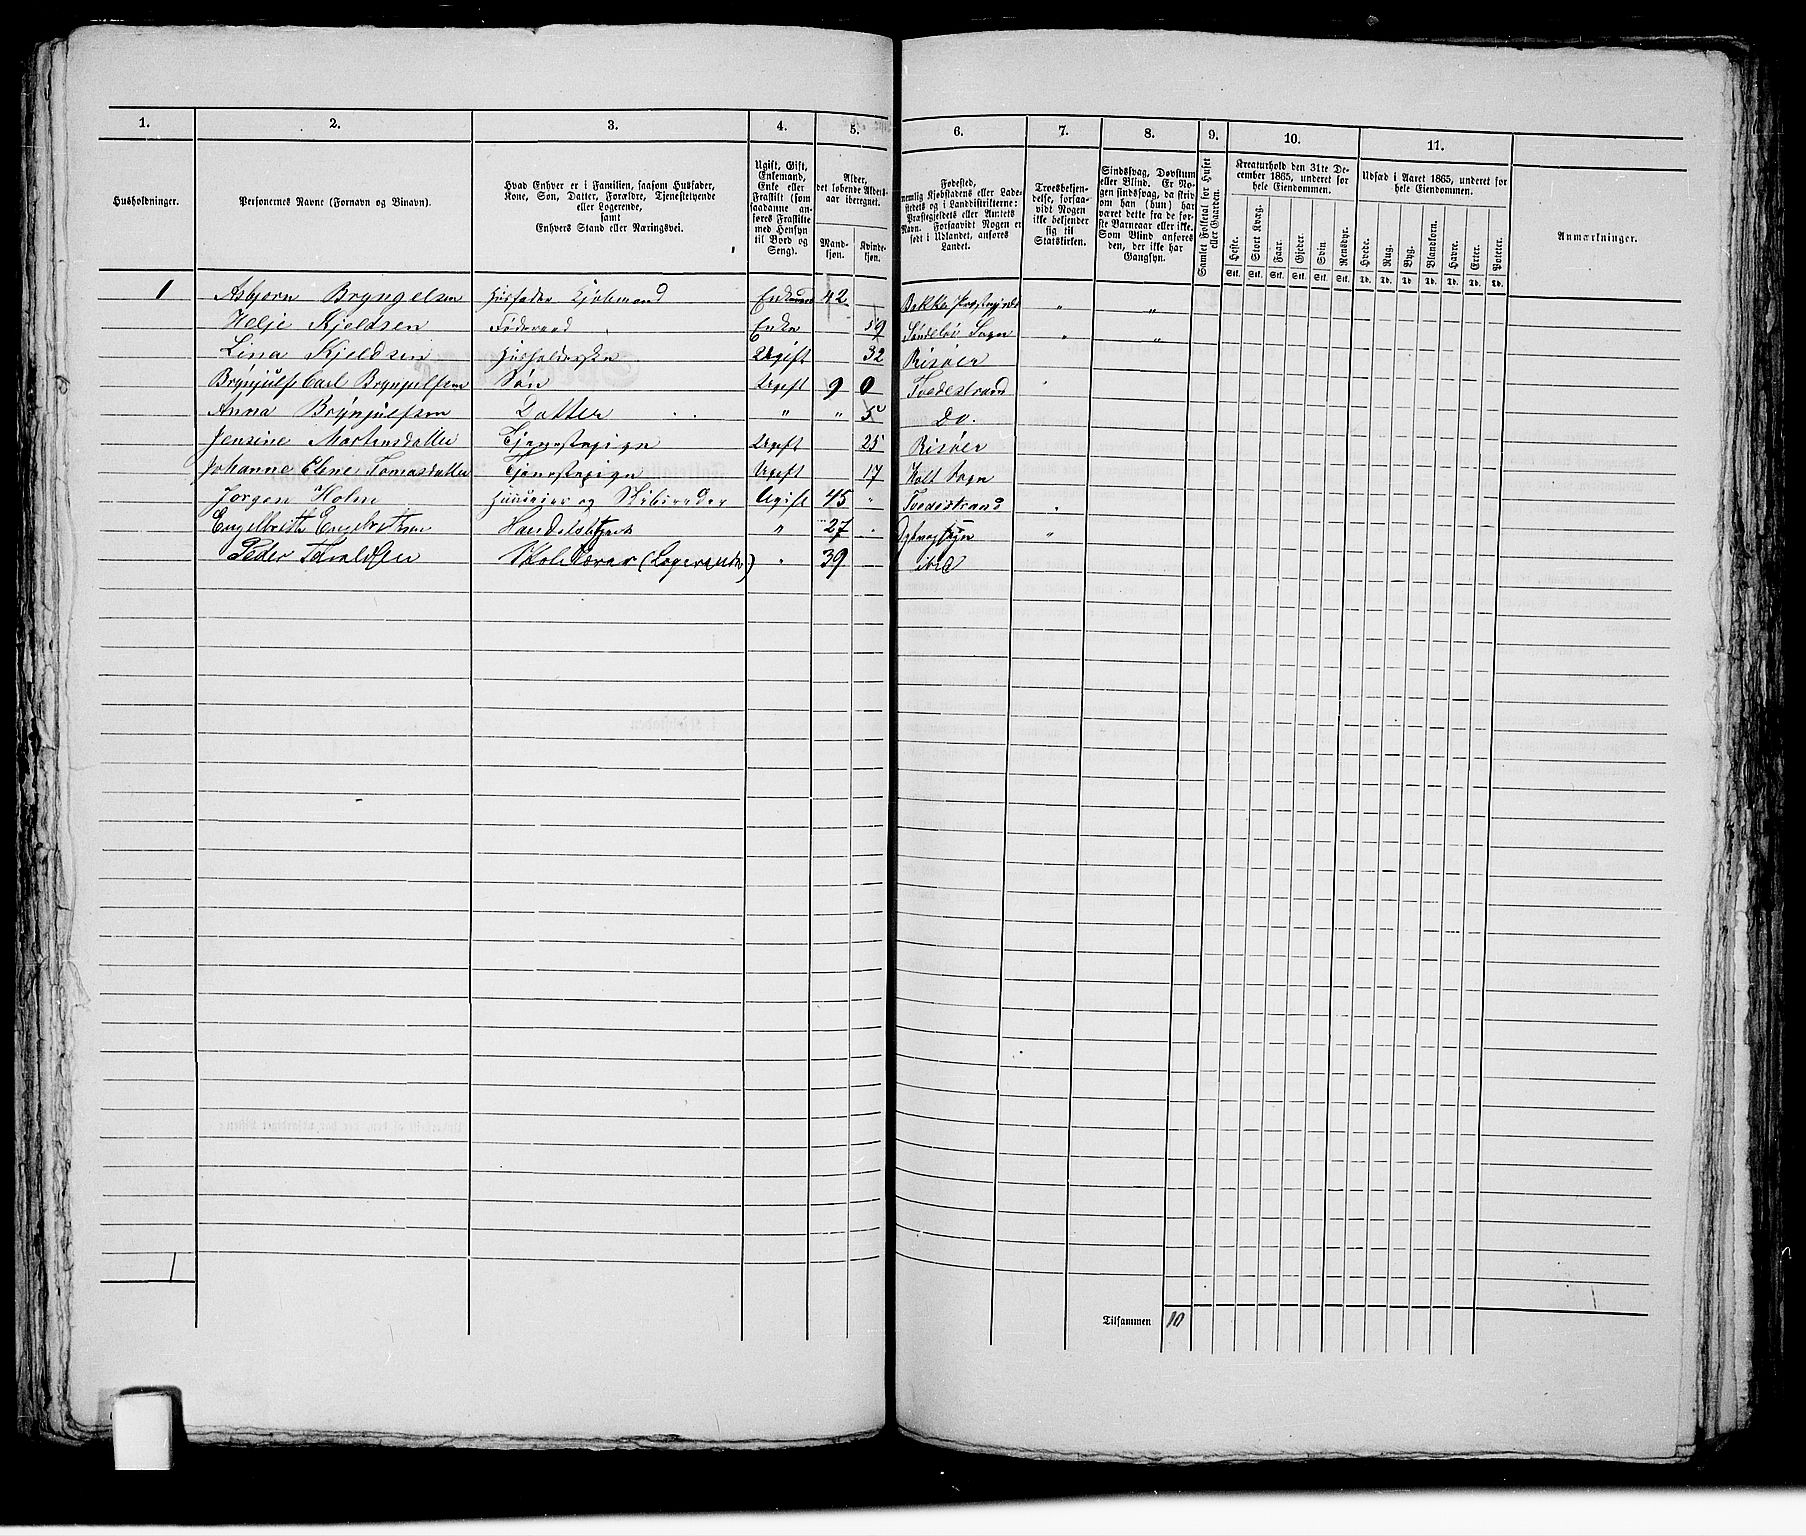 1. 2. 3. 4. 5. 6. 7. 8. 9. 10. 11.
Husholdninger.
Personernes Navne (Fornavn og Binavn).
Hvad Enhver er i Familien, saasom Husfader, Kone, Søn, Datter, Forældre, Tjenestetyende eller Logerende, samt Enhvers Stand eller Næringsvei.
Ugift, Gift, Enkemand, Enke eller Fraskilt (som saadanne anføres Fraskilte med Hensyn til Bord og Seng).
Alder, det løbende Alders-aar iberegnet.
Mand-kjøn. Kvinde-kjøn.
Fødested, nemlig Kjøbstadens eller Lade-stedets og i Landdistrikterne: Præstegjeldets eller Amtets Navn. Forsaavidt Nogen er født i Udlandet, anføres Landet.
Troesbekjen-delse, forsaa-vidt Nogen ikke bekjender sig til Statskirken.
Sindssvag, Døvstum eller Blind. Er No-gen sindssvag, da skriv om han (hun) har været dette fra de før-ste Barneaar eller ikke. Som Blind anføres den, der ikke har Gangsyn.
Samlet Folketal for Huset eller Gaarden.
Kreaturhold den 31te De-cember 1865, underet for hele Eiendommen.
Heste. Stort Kvæg. Faar. Gjeder. Svin Rensdyr.
Stk. Stk. Stk. Stk. Stk. Stk.
Udsæd i Aaret 1865, underet for hele Eiendommen.
Hvede. Rug. Byg. Blandkorn. Havre. Erter. Poteter.
Td. Td. Td. Td. Td. Td. Td.
Anmærkninger.
1 Asbjørn Bryngelsen Husfader Kjøbmand Enkemand 42 Bakke Præstegjeld
Helje Kjeldsen Føderaad Enke 59 Søndeløv Sogn
Lina Kjeldsen Husholderske Ugift 32 Risøer
Brynjulf Carl Bryngelsen Søn Ugift 9 0 Tvedestrand
Anna Brynjulfsen Datter " " 5 Do.
Jensine Martinsdatter Tjenestepige Ugift 25 Risøer
Johanne Elene Tomasdatter Tjenestepige Ugift 17 Holt Sogn
Jørgen Holm Huuseier og Skibsreder Ugift 45 " Tvedestrand
Engelbreth Engebretsen Handelsbetjent " 27
Peder Taraldsen Skolelærer (Logerende) " 39 ibid
1
Tilsammen 10